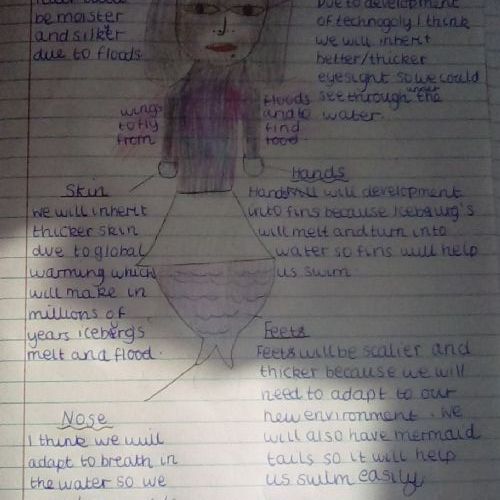 be moister
and silker
due to floods
Due to development
of technogoly I think
we will inherit
better/thicker
eyesight so we could
see through under the
water.
wings
to fly
from
floods
and to
find
food
Skin
we will inherit
thicker skin
due to global
warming which
will make in
millions of
years iceberg's
melt and flood.
Hands
Hands will development
into fins because Icebgurg's
will melt and turn into
water so fins will help
us swim
Feets
Feets will be scalier and
thicker because we will
need to adapt to our
new environment. We
will also have mermaid
tails so it will help
us swim easily
Nose
I think we will
adapt to breath in
the water so we